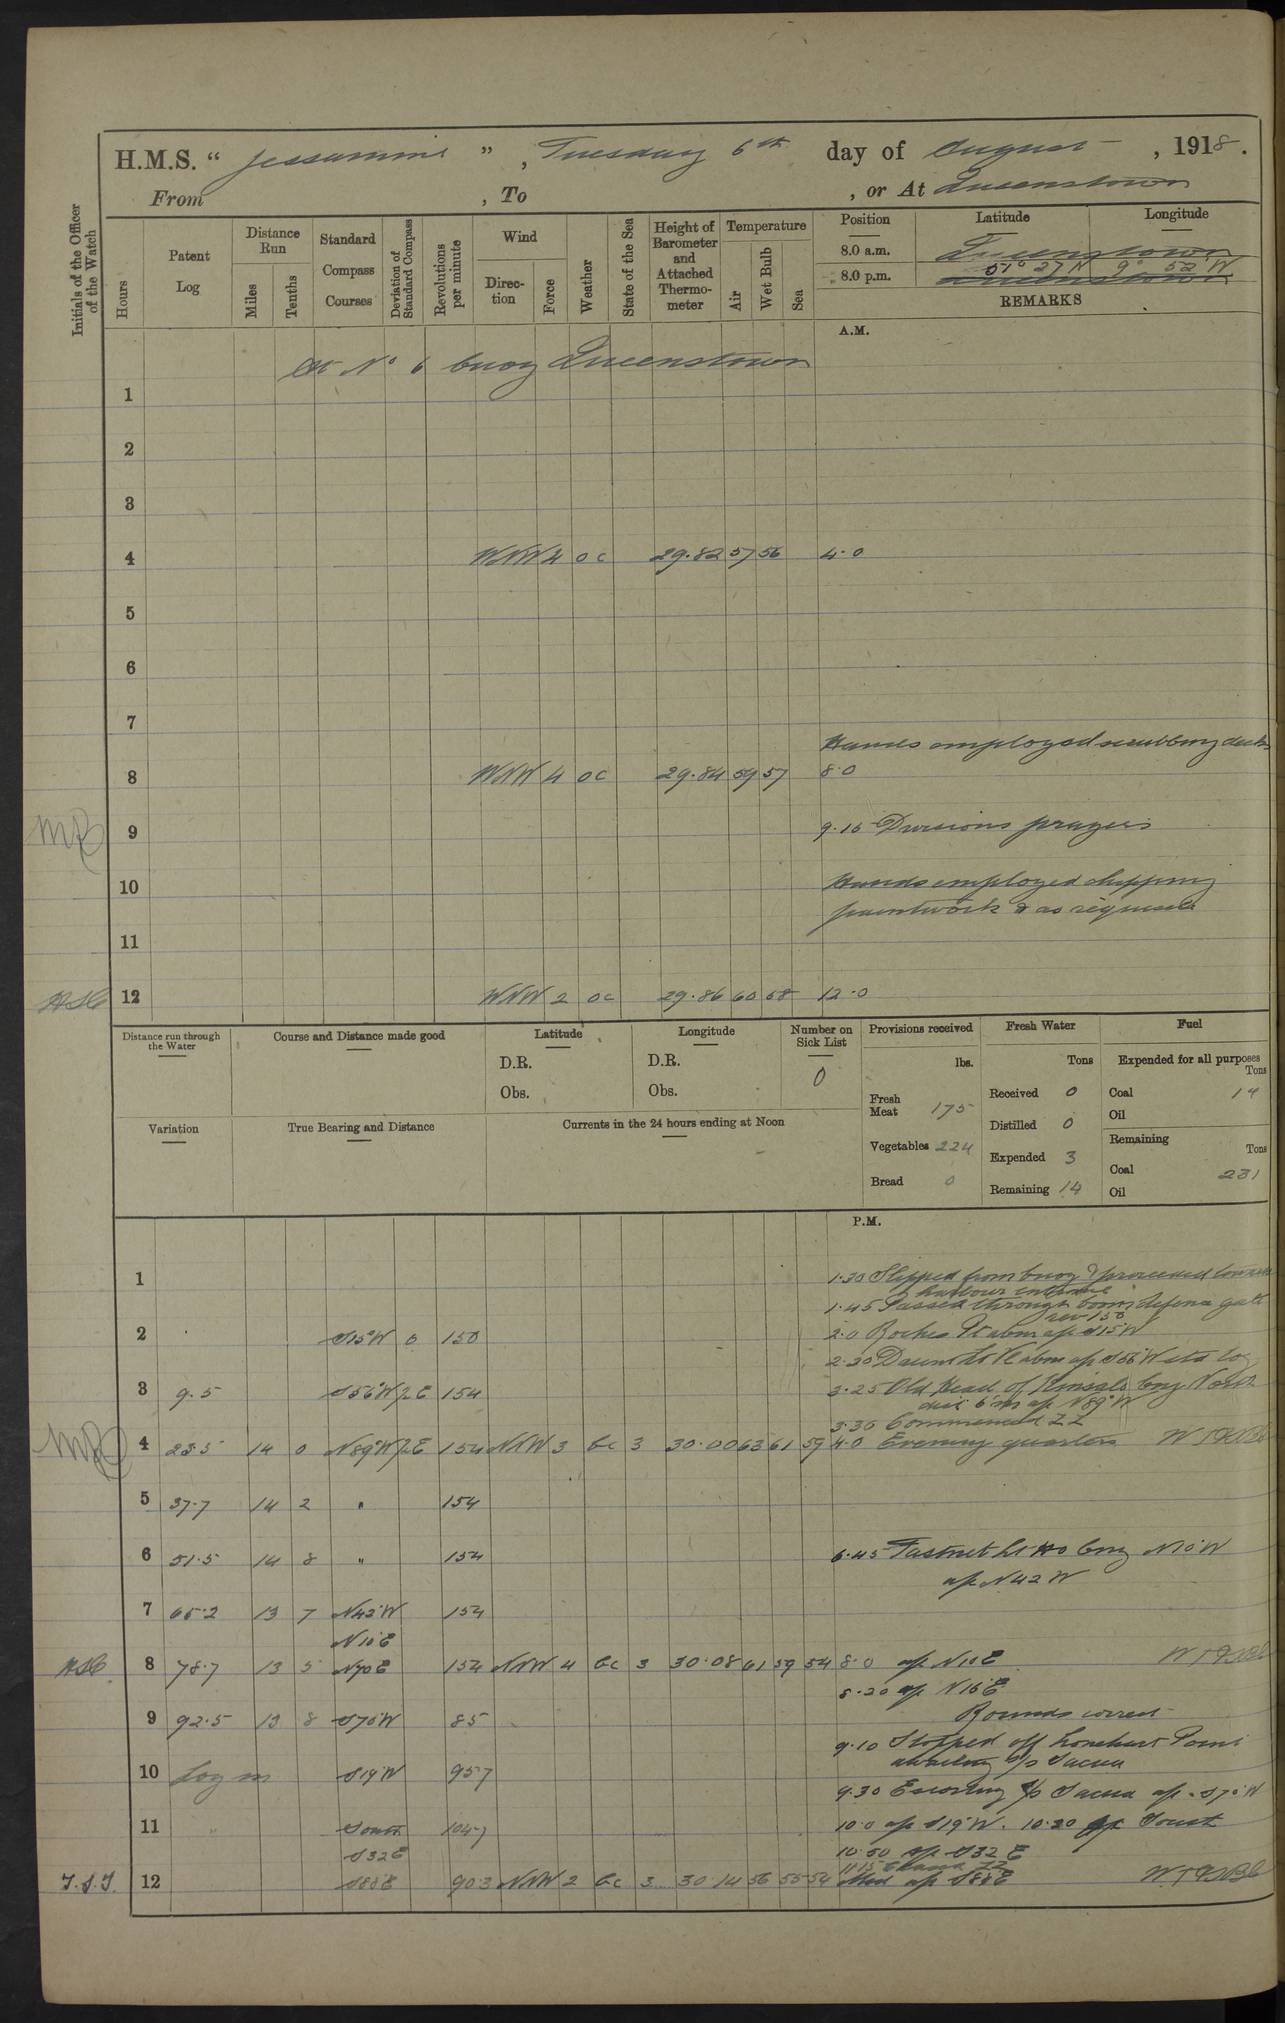 H.M.S. " Jessamine ", Tuesday 6th day of August, 1918.
From , To , or At Queenstown
Initials of the Officer of the Watch
Hours
Patent Log
Distance Run
Miles
Tenths
Standard Compass Courses
Deviation of Standard Compass
Revolutions per minute
Wind
Direction
Force
Weather
State of the Sea
Height of Barometer and Attached Thermometer
Temperature
Air
Wet Bulb
Sea
Position Latitude Longitude
8.0 a.m. Queenstown
8.0 p.m. 51° 27 N 9° 52 W
REMARKS
A.M.
At No 6 buoy Queenstown
1
2
3
4 WNW 4 oc 29.82 57 56 4.0
5
6
7
Hands employed scrubbing decks
8 WNW 4 oc 29.84 59 57 8.0
9 9.15 Divisions prayers
10 Hands employed chipping
paintwork & as requisite
11
12 WNW 2 oc 29.86 60 58 12.0
Distance run through the Water
Course and Distance made good
Latitude
D.R.
Obs.
Longitude
D.R.
Obs.
Number on Sick List
0
Provisions received
lbs.
Fresh Meat 175
Vegetables 224
Bread 0
Fresh Water
Tons
Received 0
Distilled 0
Expended 3
Remaining 14
Fuel
Expended for all purposes
Tons
Coal
Oil
Remaining
Tons
Coal 231
Oil
Variation
True Bearing and Distance
Currents in the 24 hours ending at Noon
P.M.
1 1.30 Slipped from buoy & proceeded towards
harbour entrance
1.45 Passed through boom defence gate
rev 150
2 S15W 0 150 2.0 Roches Pt abm a/c S15W
2.20 Daunt Lt Vl abm a/c S56W std log
3 9.5 S56W 2E 154 3.25 Old Head of Kinsale brg North
dist 5 ms a/c N89°W
3.30 Commenced ZZ
4 23.5 14 0 N89W 2E 154 NNW 3 bc 3 30.00 63 61 59 4.0 Evening quarters
5 37.7 14 2 " 154
6 51.5 14 8 " 154 6.45 Fastnet Lt Ho brg N10W
a/c N42W
7 65.2 13 7 N42W 154
N10E
8 78.7 13 5 N70E 154 NNW 4 bc 3 30.08 61 59 54 8.0 a/c N10E
8.20 a/c N16E
Rounds correct
9 92.5 13 8 S70W 85
9.10 Stopped off Lonehort Point
awaiting s/s
10 Log in S19W 95.7
9.30 Escorting s/s a/c S70W
11 South 104.7 10.0 a/c S19W. 10.20 a/c South
S32E 10.50 a/c S32E
11.15 ZZ
12 S88E 90.3 NNW 2 bc 3 30 14 56 55 54 Mid a/c S88E